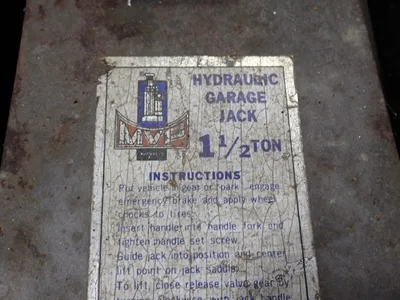 HYDRAULIC
GARAGE
JACK
MVP
1 1/2 TON
INSTRUCTIONS
Put vehicle in gear or park, engage
emergency brake and apply wheel
chocks to tires.
Insert handle into handle fork and
tighten handle set screw.
Guide jack into position and center
lift point on jack saddle.
To lift, close release valve gear by
with jack handle